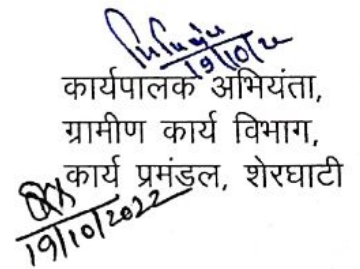 19/10/22
कार्यपालक अभियंता,
ग्रामीण कार्य विभाग,
कार्य प्रमंडल, शेरघाटी
19/10/2022